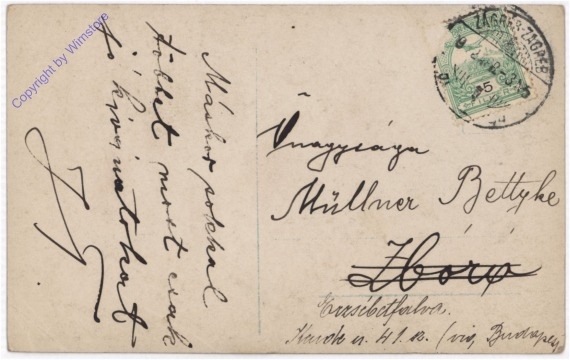 Copyright by Wimstore
Máskor sokkal
többet most csak
jó kivánatokat
ZÁGRÁB-ZAGREB
Őnagysága
Müllner Bettyke
Zboró
Erzsébetfalva
41. sz. (via Budapest)